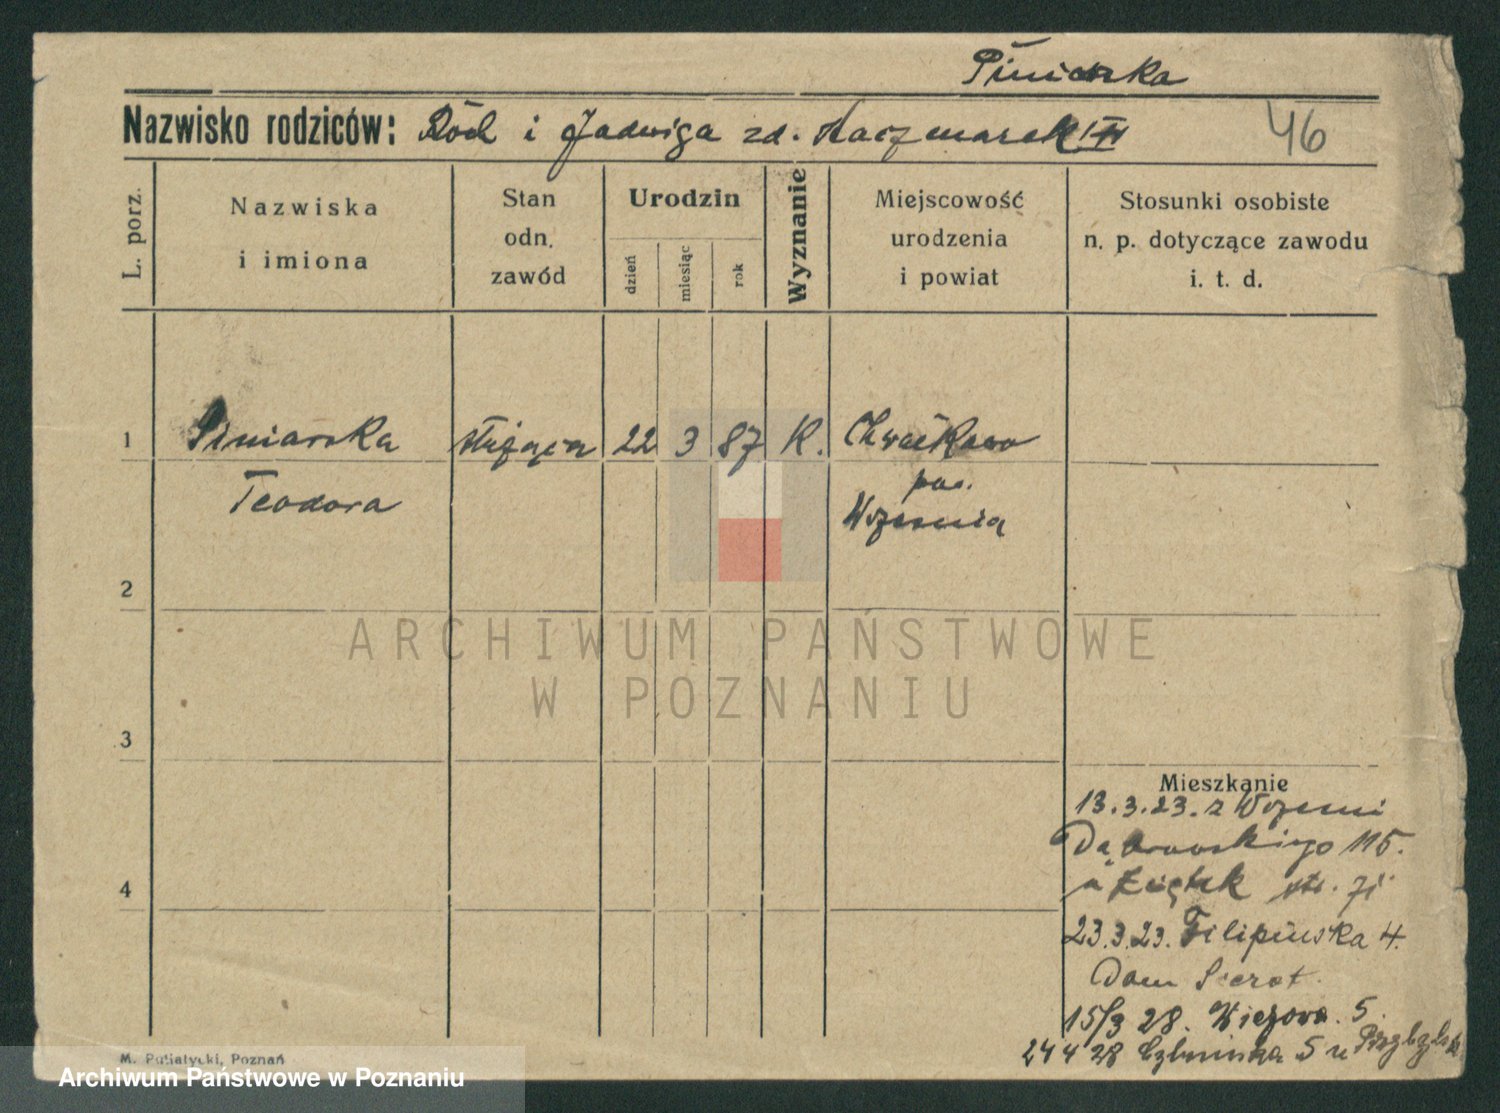 Piniarska
Nazwisko rodziców: Roch i Jadwiga zd. Kaczmarek III
46
L. porz.
Nazwiska
i imiona
Stan
odn.
zawód
Urodzin
dzień
miesiąc
rok
Wyznanie
Miejscowość
urodzenia
i powiat
Stosunki osobiste
n. p. dotyczące zawodu
i. t. d.
1 Piniarska służąca 22 3 87 K. Chwałkowo
Teodora
pow.
Września
2
3
4
Mieszkanie
13.3.23. z Wrześni
Dąbrowskiego 115.
u
23.3.23. Filipińska 4.
Dom Sierot
15/3 28. Wieżowa. 5.
24 4 28 Cybińska 5 u
M. Putiatycki, Poznań
Archiwum Państwowe w Poznaniu
ARCHIWUM PAŃSTWOWE
W POZNANIU